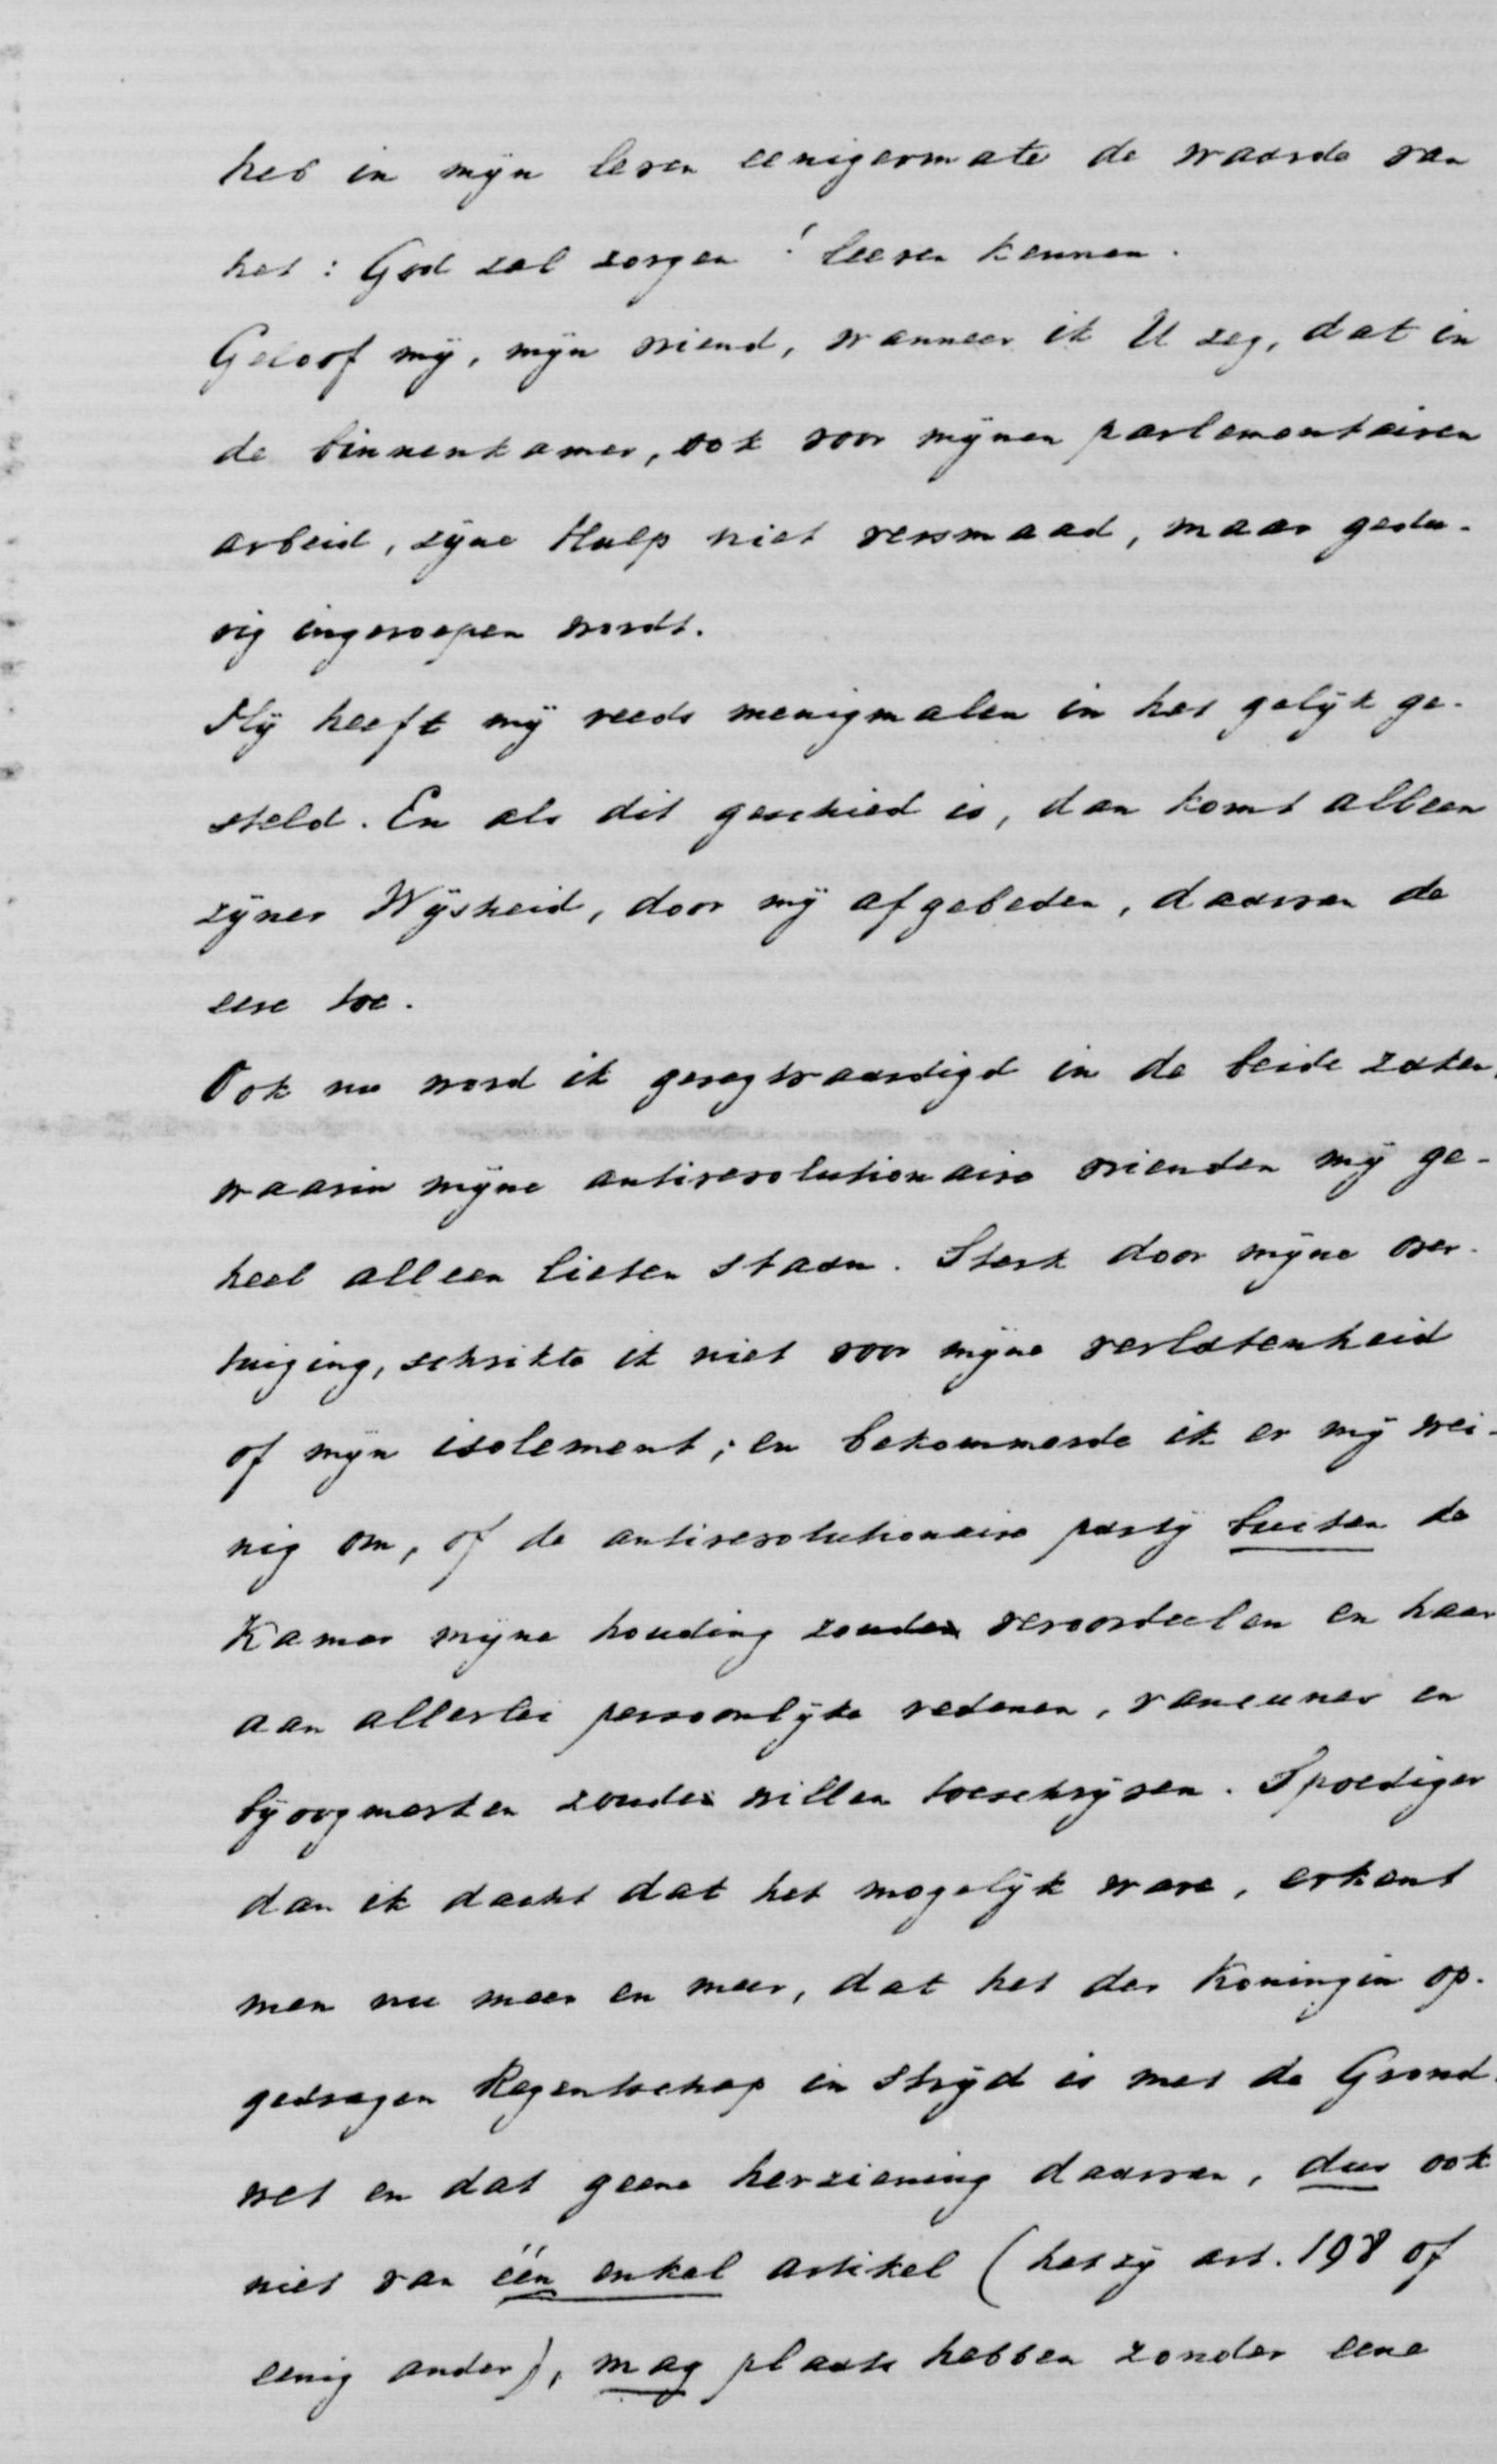 heb in mijn leven eenigermate de waarde van
het: God zal zorgen! leeren kennen.
Geloof mij, mijn vriend, wanneer ik U zeg, dat in
de binnenkamer, ook voor mijnen parlementairen
arbeid, zijne Hulp niet versmaad, maar gedu-
rig ingeroepen wordt.
Hij heeft mij reeds menigmalen in het gelijk ge-
steld. En als dit geschied is, dan komt alleen
zijner Wijsheid, door mij afgebeden, daarvan de
eere toe.
Ook nu word ik geregtvaardigd in de beide zaken,
waarin mijne antirevolutionaire vrienden mij ge-
heel alleen lieten staan. Sterk door mijne over-
tuiging, schrikte ik niet voor mijne verlatenheid
of mijn isolement; en bekommerde ik er mij wei-
nig om, of de antirevolutionaire partij buiten de
Kamer mijne houding zoude veroordeelen en haar
aan allerlei persoonlijke redenen, rancunes en
bijoogmerken zoude willen toeschrijven. Spoediger
dan ik dacht dat het mogelijk ware, erkent
men nu meer en meer, dat het der Koningin op-
gedragen Regentschap in strijd is met de Grond-
wet en dat geene herziening daarvan, dus ook
niet van één enkel artikel (hetzij art. 198 of
eenig ander), mag plaats hebben zonder eene